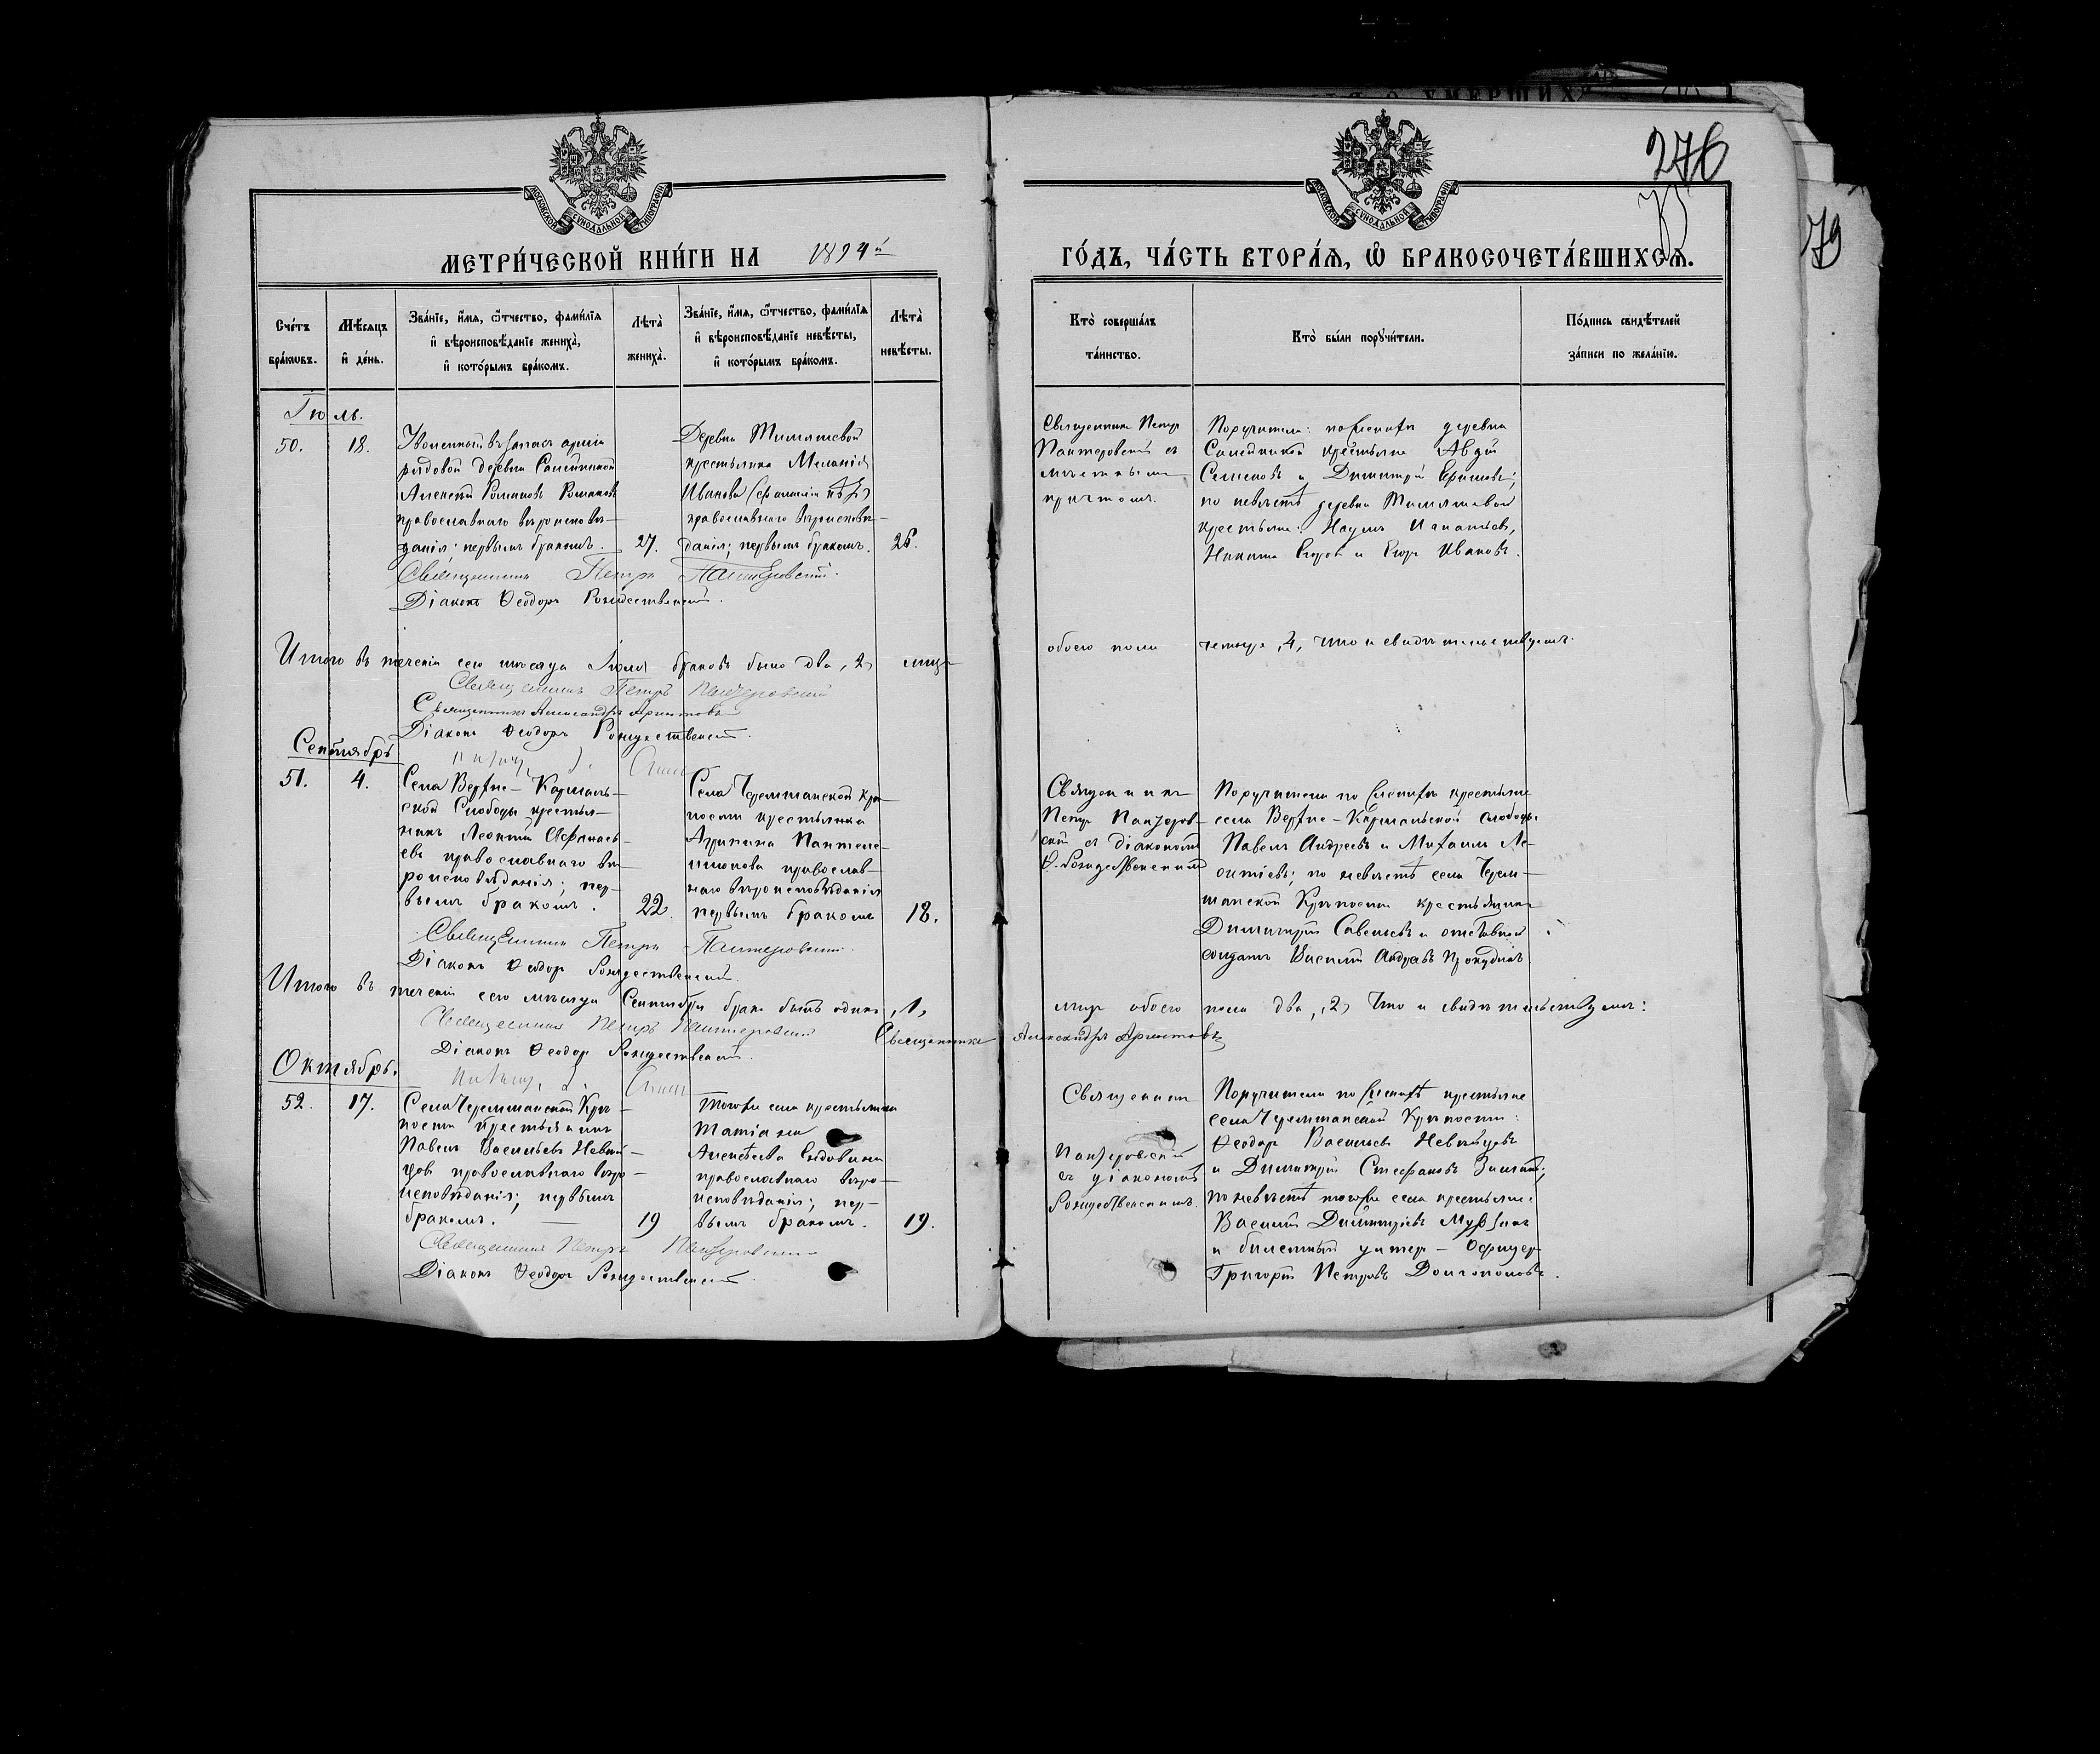 276
79
МОСКОВСКОЙ СѴНОДАЛЬНОЙ ТИПОГРАФІИ
МОСКОВСКОЙ СѴНОДАЛЬНОЙ ТИПОГРАФІИ
МЕТРИ́ЧЕСКОЙ КНИ́ГИ НА 1894й
ГО́ДЪ, ЧА́СТЬ ВТОРА́Я, Ѽ БРАКОСОЧЕТА́ВШИХСЯ.
Сче́тъ бра́ковъ.
Мѣ́сяцъ и҆ де́нь.
Зва́нїе, и҆́мя, ѻ҆́тчество, фами́лїя
и҆ вѣроисповѣ́данїе жениха̀,
и҆ кото́рымъ бра́комъ.
Лѣта̀ жениха̀.
Зва́нїе, и҆́мя, ѻ҆́тчество, фами́лїя
и҆ вѣроисповѣ́данїе невѣ́сты,
и҆ кото́рымъ бра́комъ.
Лѣта̀ невѣ́сты.
Кто̀ соверша́лъ та́инство.
Кто̀ бы́ли порꙋчи́тели.
По́дпись свидѣ́телей
за́писи по жела́нїю.
Іюль.
50.
18.
Уволенный въ запасъ арміи
рядовой деревни
Алексѣй Романовъ Романовъ
православнаго вѣроисповѣ-
данія; первымъ бракомъ.
27.
Деревни
крестьянка Меланія
Иванова (фамиліи нѣтъ)
православнаго вѣроисповѣ-
данія; первымъ бракомъ.
26.
Священникъ Петръ
Пантеровскій съ
мѣстнымъ
причтомъ.
Поручители: по женихѣ деревни
крестьяне Авдій
Семеновъ и Димитрій
по невѣстѣ деревни
крестьяне: Наумъ Игнатьевъ,
Никита Егоровъ и Егоръ Ивановъ.
Священникъ Петръ Пантеровскій.
Діаконъ Ѳеодоръ Рождественскій.
Итого въ теченіи сего мѣсяца Іюля браковъ было два, 2, лицъ
обоего пола четыре, 4, что и свидѣтельствуемъ.
Священникъ Петръ Пантеровскій
Священникъ Александръ Аристовъ
Діаконъ Ѳеодоръ Рождественскій.
Сентябрь
51.
4.
Села Верхне-Кармаль-
ской Слободы крестья-
нинъ Леонтій
евъ православнаго вѣ-
роисповѣданія; пер-
вымъ бракомъ.
22.
Села Черемшанской Крѣ-
пости крестьянка
Агрипина Пантеле-
имонова православ-
наго вѣроисповѣданія
первымъ бракомъ
18.
Священникъ
Петръ Пантеров-
скій съ діакономъ
Ѳ. Рождественскимъ
Поручители по женихѣ крестьяне
села Верхне-Кармальской слободы
Павелъ Андреевъ и Михаилъ Ле-
онтіевъ; по невѣстѣ села Черем-
шанской Крѣпости крестьянинъ
Димитрій Савельевъ и отставной
солдатъ Василій Андреевъ Прокудинъ.
Священникъ Петръ Пантеровскій.
Діаконъ Ѳеодоръ Рождественскій.
Итого въ теченіи сего мѣсяца Сентября бракъ былъ одинъ, 1,
лицъ обоего пола два, 2, что и свидѣтельствуемъ:
Священникъ Петръ Пантеровскій
Священникъ Александръ Аристовъ
Діаконъ Ѳеодоръ Рождественскій.
Октябрь.
52.
17.
Села Черемшанской Крѣ-
пости крестьянинъ
Павелъ Васильевъ
православнаго вѣро-
исповѣданія; первымъ
бракомъ.
19
Того же села крестьянка
Матрона
Алексѣева
православнаго вѣро-
исповѣданія; пер-
вымъ бракомъ.
19.
Священникъ
Пантеровскій
съ діакономъ
Рождественскимъ.
Поручители по женихѣ крестьяне
села Черемшанской Крѣпости:
Ѳеодоръ Васильевъ
и Димитрій Стефановъ
по невѣстѣ того же села крестьяне:
Василій Димитріевъ
и билетный унтеръ-Офицеръ
Григорій Петровъ Долгополовъ.
Священникъ Петръ Пантеровскій
Діаконъ Ѳеодоръ Рождественскій.